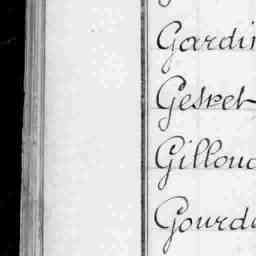 Gardin
Gesret
Gillouc
Gourdo